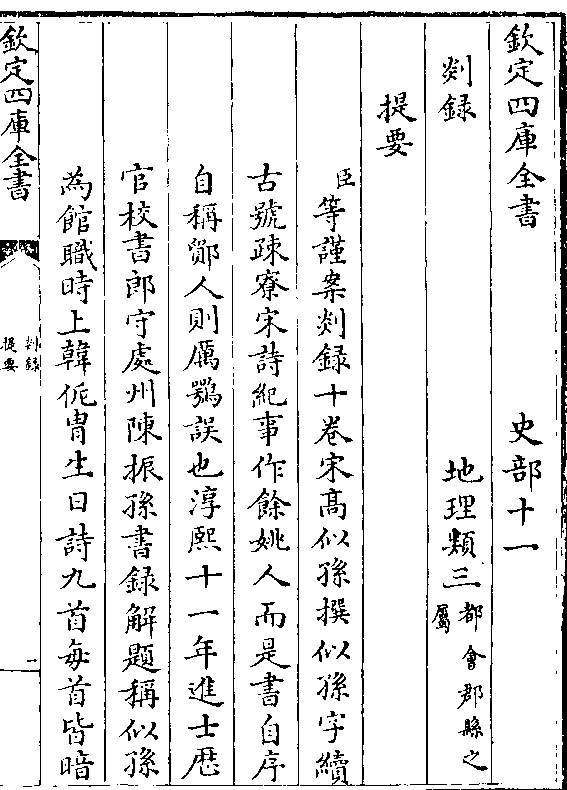 欽定四庫全書 史部十一
剡錄 地理類三都會郡縣之屬
提要
臣等謹案剡錄十卷宋髙似孫撰似孫字續
古號疎寮宋詩紀事作餘姚人而是書自序
自稱鄮人則厲鶚誤也淳熙十一年進士歴
官校書郎守處州陳振孫書錄解題稱似孫
為館職時上韓侂胄生日詩九首每首皆暗
欽定四庫全書
剡錄
提要
一